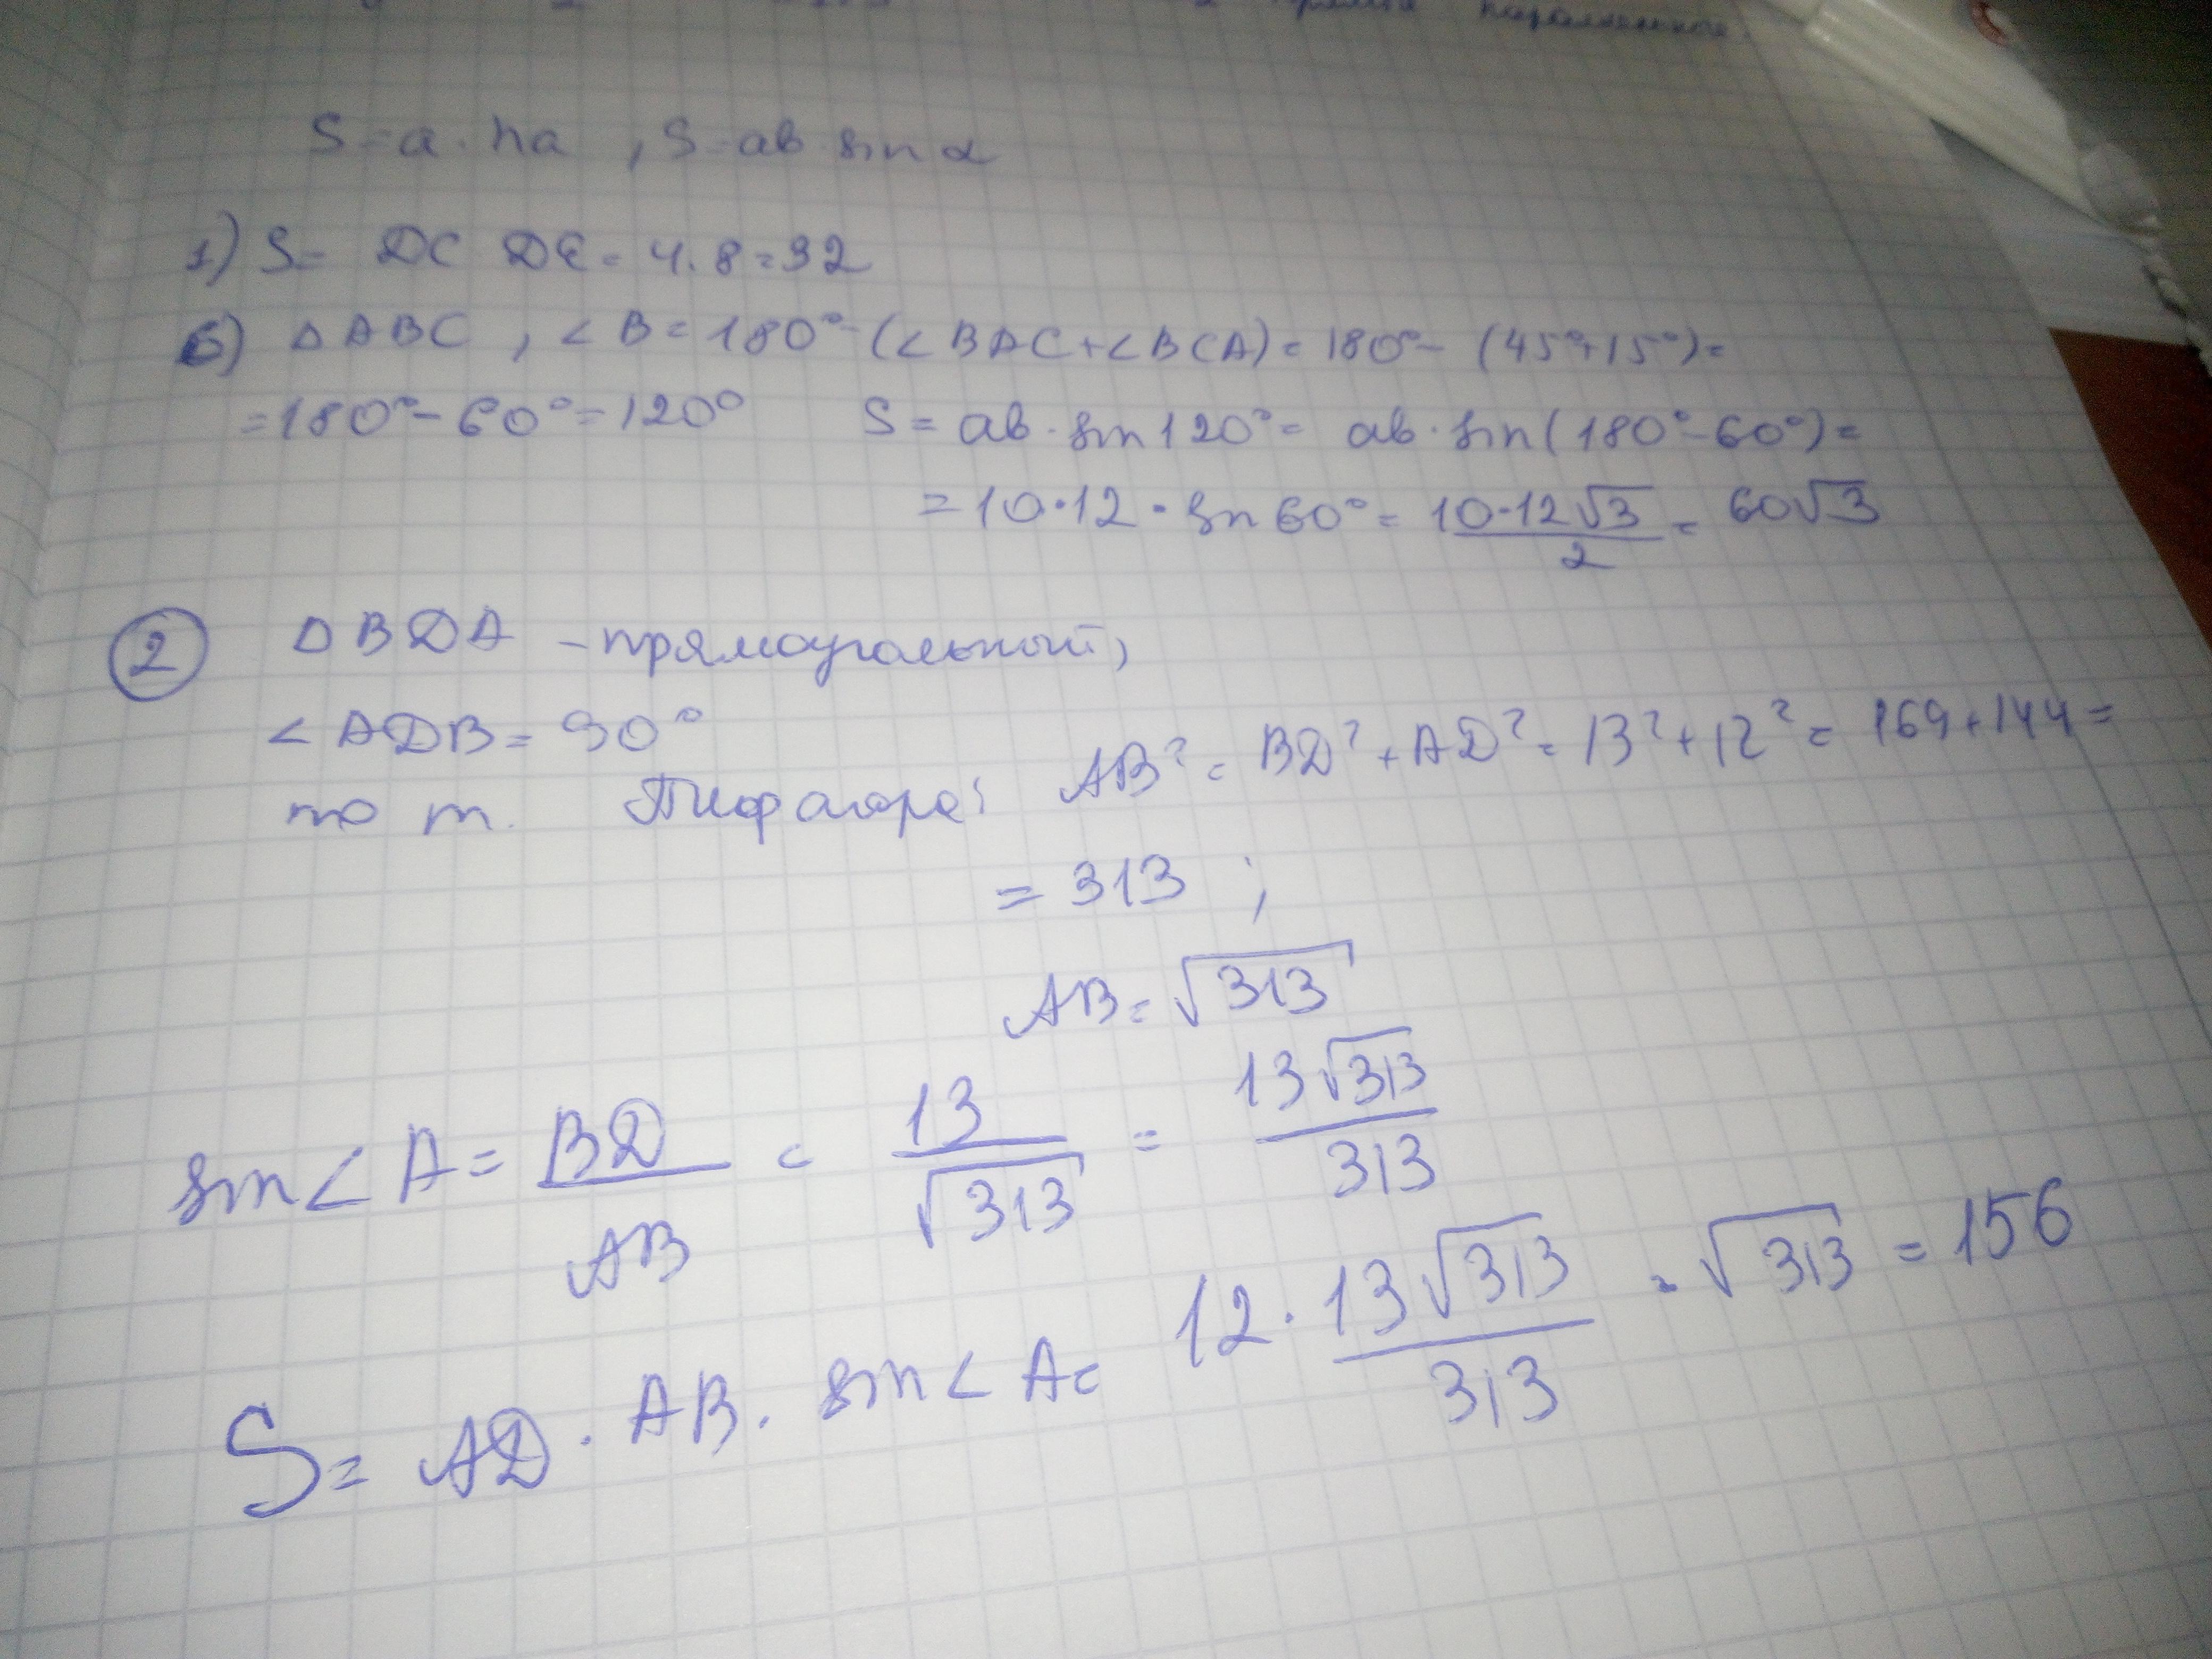 прямой
S=a·ha, S=ab sin α
1) S= DC DE = 4·8=32
6) ΔABC, ∠B=180°-(∠BAC+∠BCA)=180°-(45°+15°)=
=180°-60°=120° S=ab·sin120°=ab·sin(180°-60°)=
=10·12·sin60°= 10·12√3/2 = 60√3
2 ΔBDA -прямоугольный,
∠ADB=90°
по т. Пифагора: AB²=BD²+AD²=13²+12²=169+144=
=313;
AB=√313
sin∠A= BD/AB = 13/√313 = 13√313/313
S= AD·AB·sin∠A= 12·13√313/313 · √313 =156